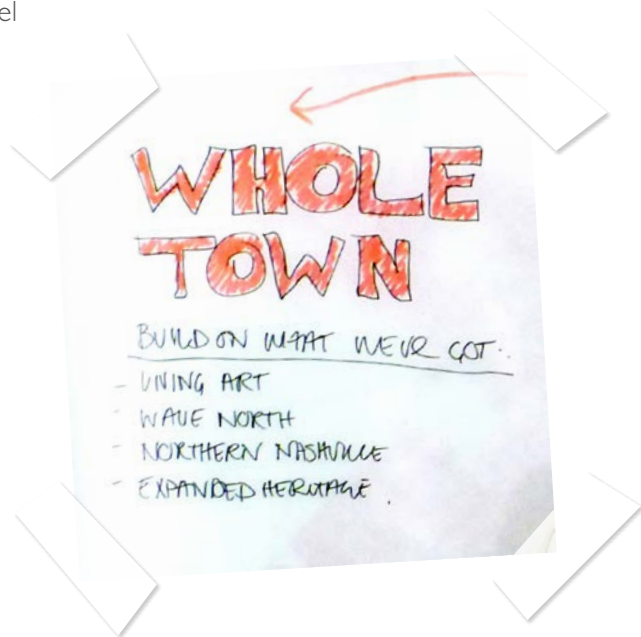 el
WHOLE
TOWN
BUILD ON WHAT WE'VE GOT..
- LIVING ART
- WAVE NORTH
- NORTHERN NASHVILLE
- EXPANDED HERITAGE.